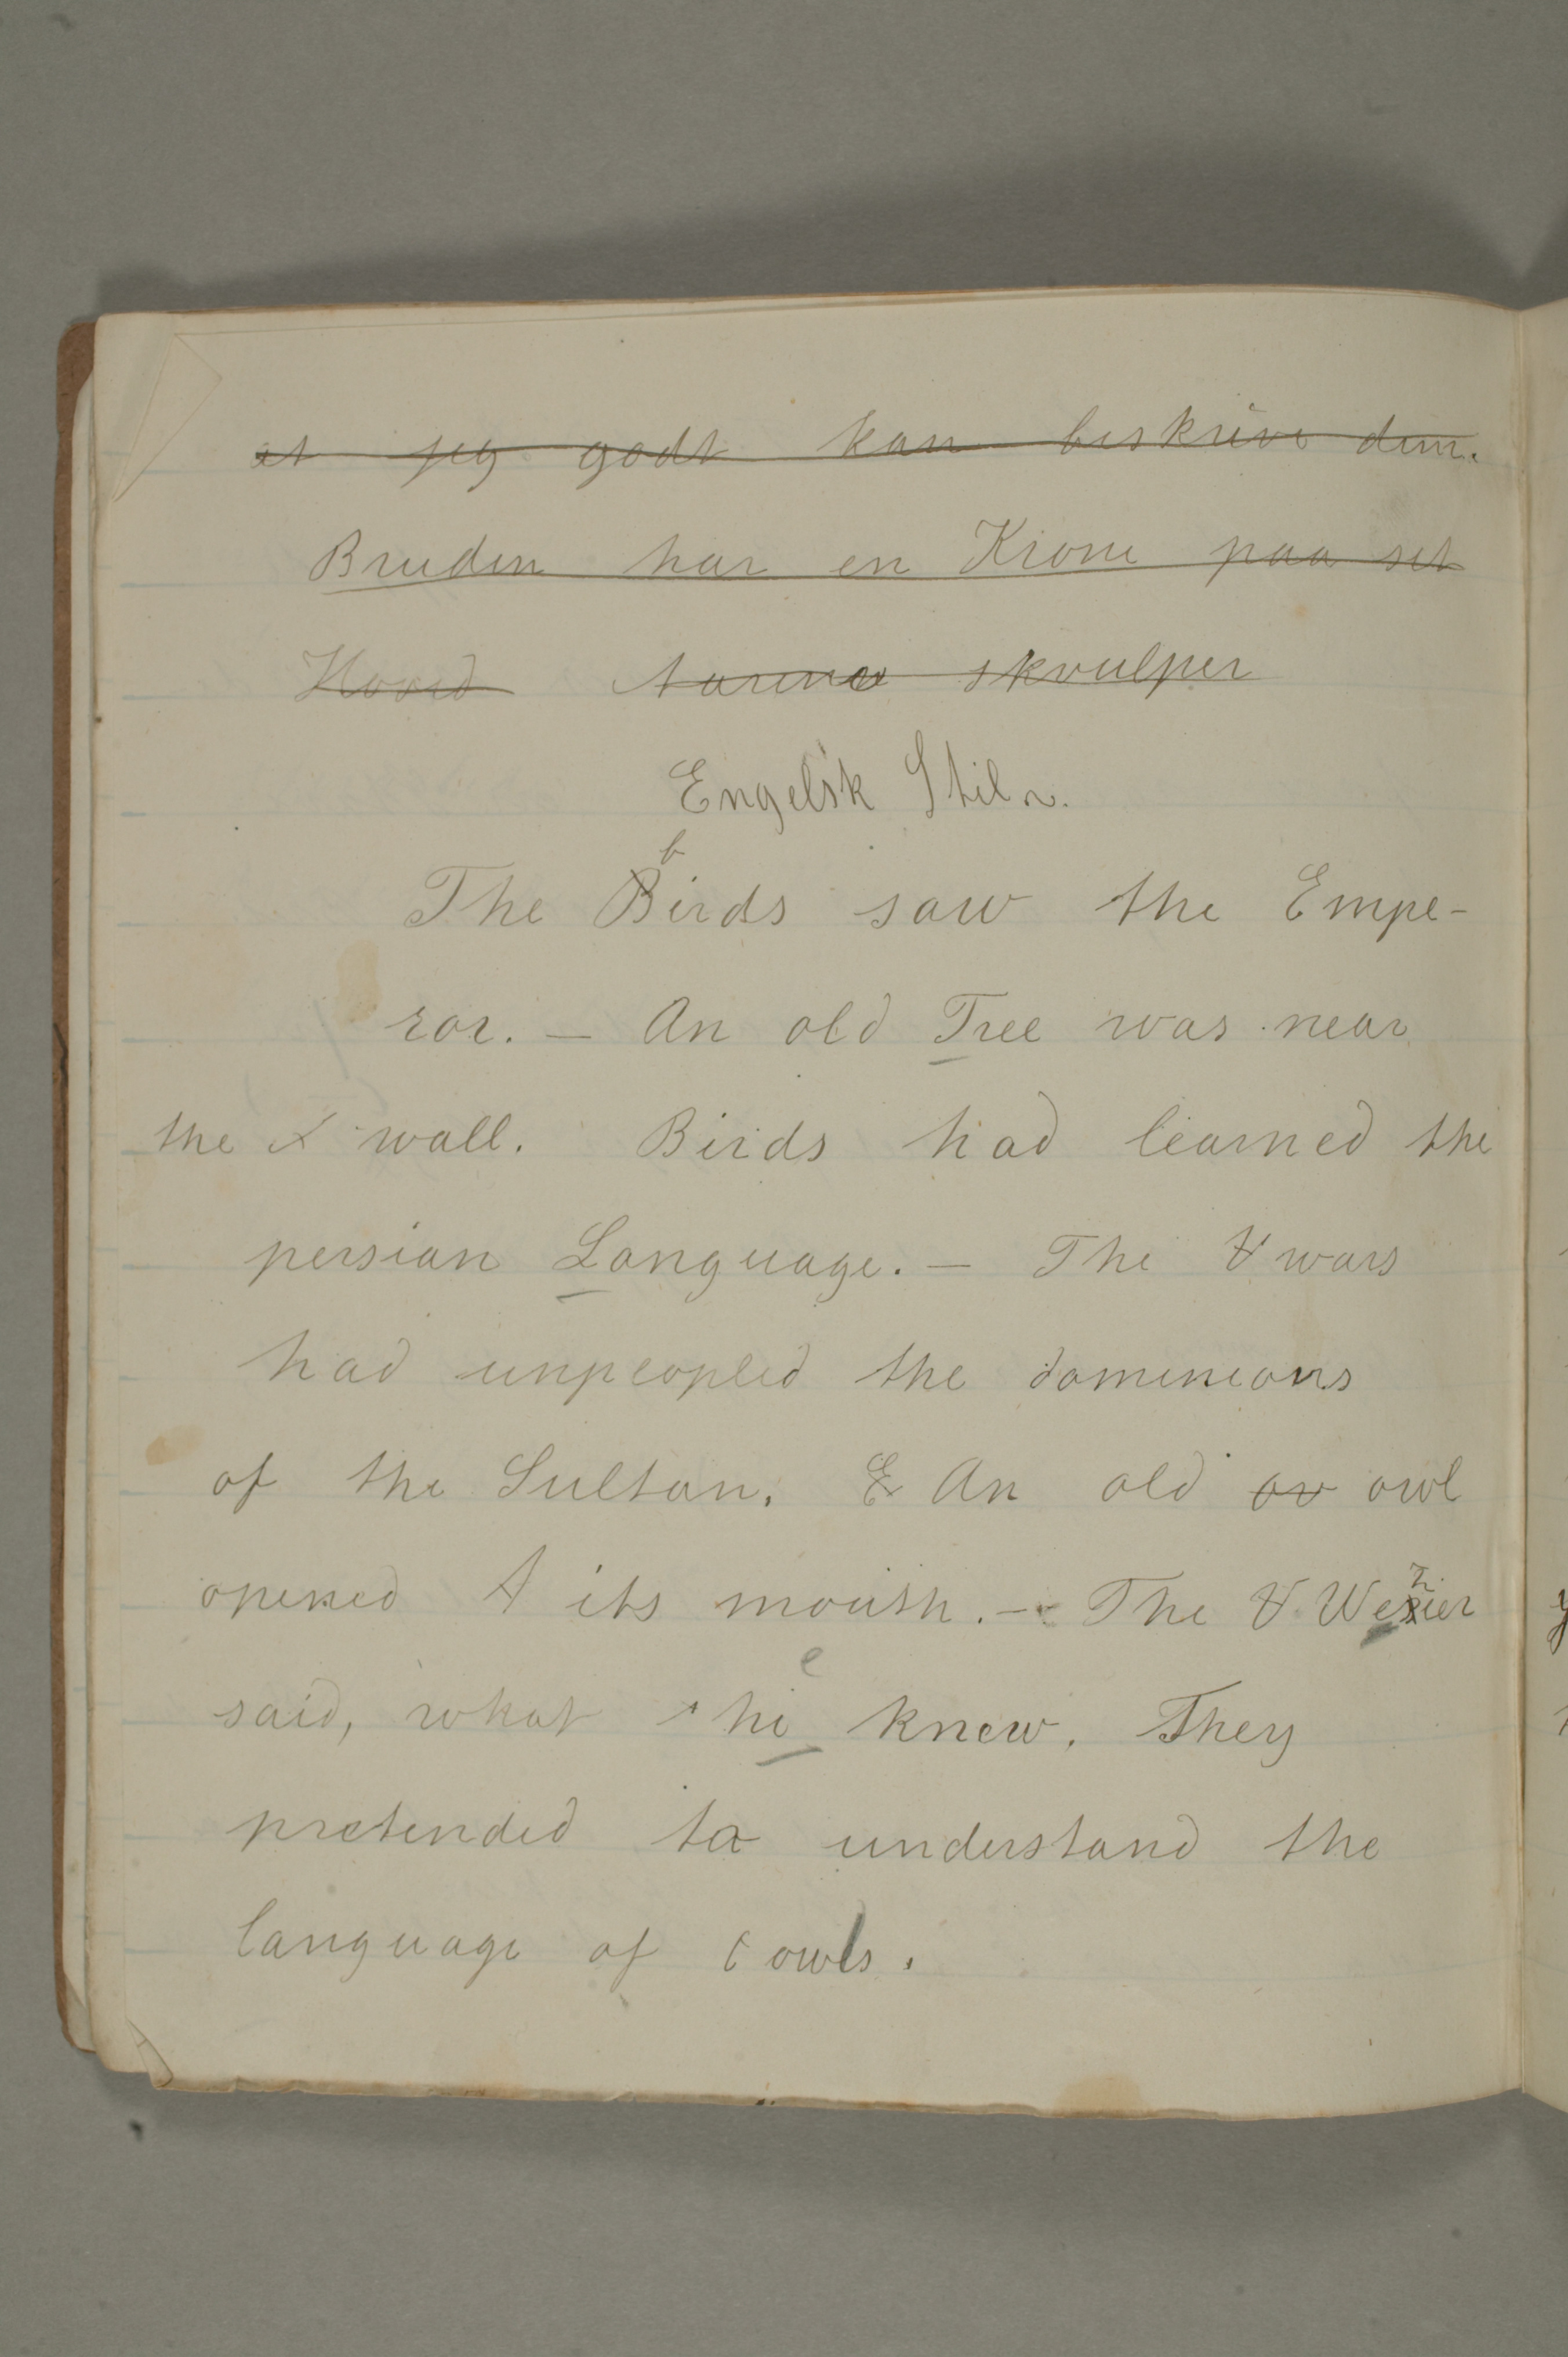 at jeg godt kan beskrive dem.
Bruden har en Krone paa set
Hoved Aarene skvulper
Engelsk Stil
b
The Birds saw the Empe-
ror. — An old Tree was near
the wall. Birds had learned the
persian Language. — The wars
had unpeopled the domineons
of the Sultan. E An old ow owl
opened its mouth. — The V Wesier
z
e
said, what hi knew. They
pretended to understand the
language of owls.